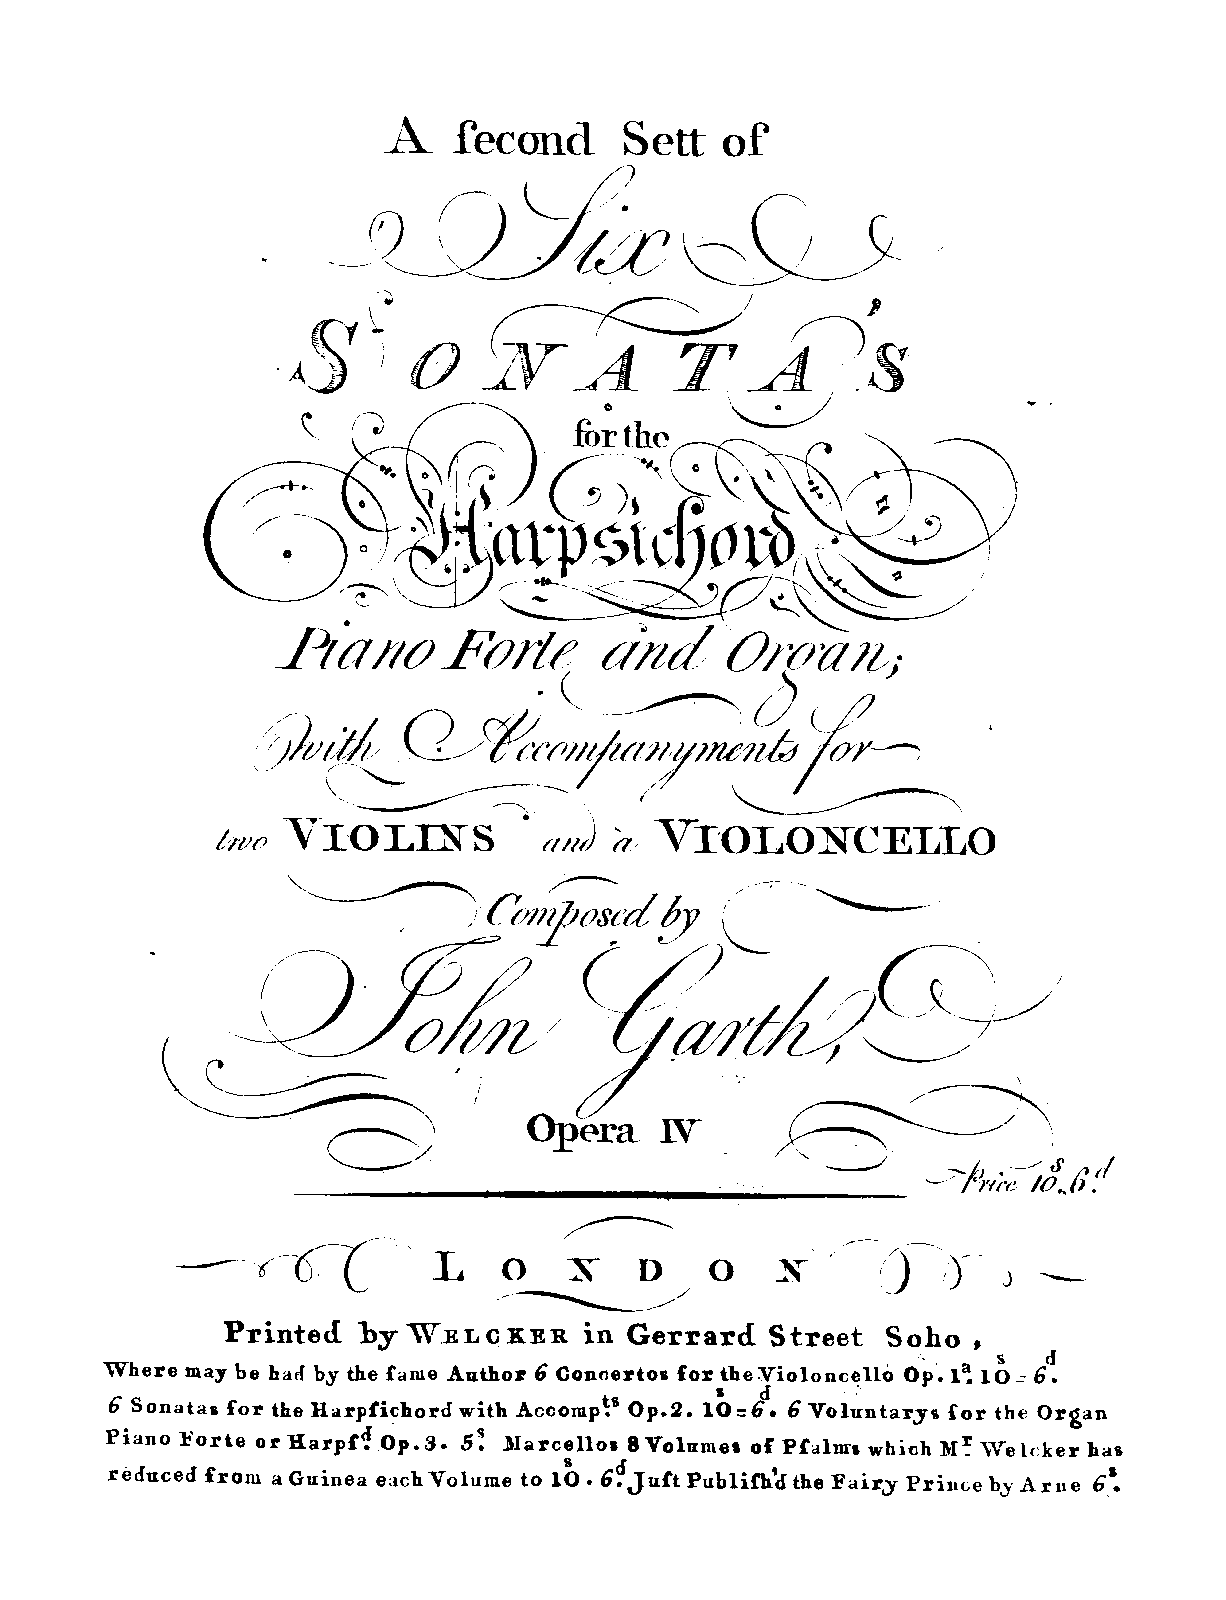 A ſecond Sett of
Six
SONATA'S
for the
Harpsichord
Piano Forte and Organ;
with Accompanyments for
two VIOLINS and a VIOLONCELLO
Composed by
John Garth,
Opera IV
Price 10s,,6.d
LONDON
Printed by WELCKER in Gerrard Street Soho,
Where may be had by the ſame Author 6 Concertos for the Violoncello Op. 1a. 10s=6d.
6 Sonatas for the Harpſichord with Accomp.ts Op.2. 10s=6d. 6 Voluntarys for the Organ
Piano Forte or Harpſd. Op.3. 5s. Marcellos 8 Volumes of Pſalms which Mr. Welcker has
reduced from a Guinea each Volume to 10s. 6d. Juſt Publiſh'd the Fairy Prince by Arne 6s.